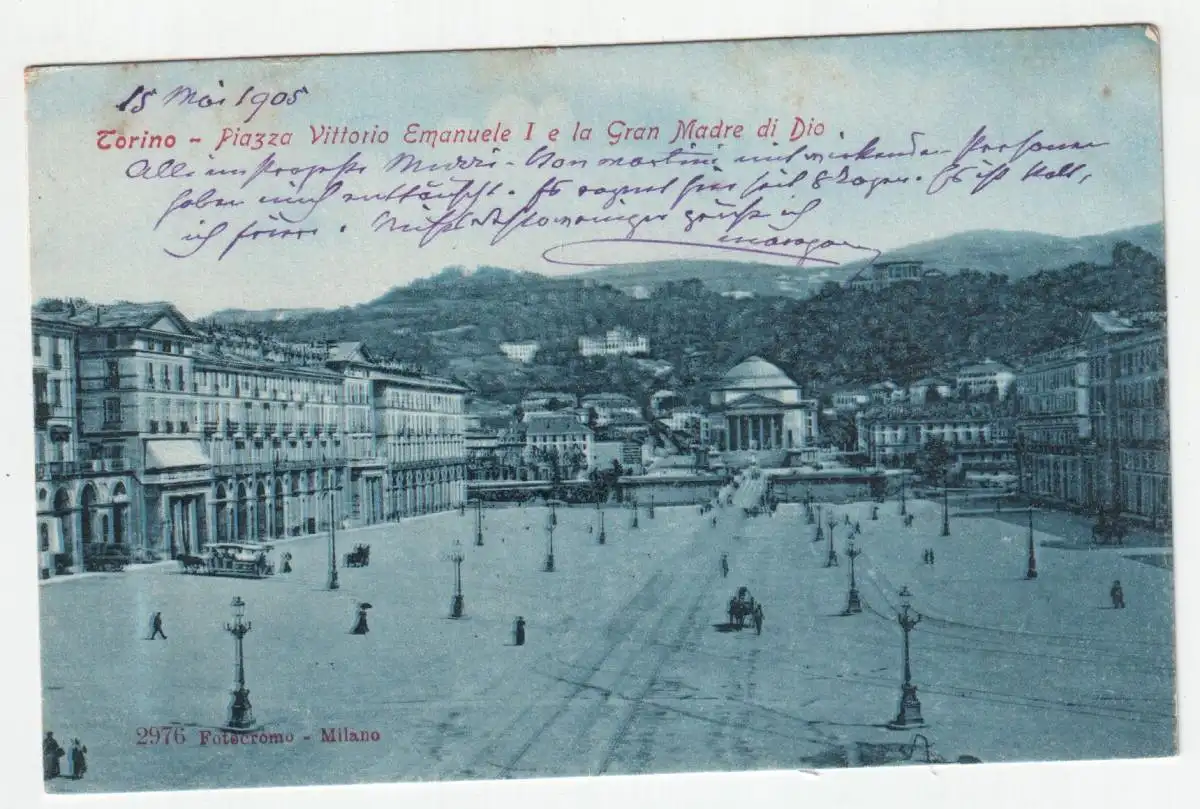 15 Mai 1905
Torino - Piazza Vittorio Emanuele I e la Gran Madre di Dio
Alle im Prospekte mitwirkenden Personen
haben mich enttäuscht. Es regnet hier seit 8 Tagen. Es ist kalt,
ich friere. grüßt ich
2976 Fotocromo - Milano